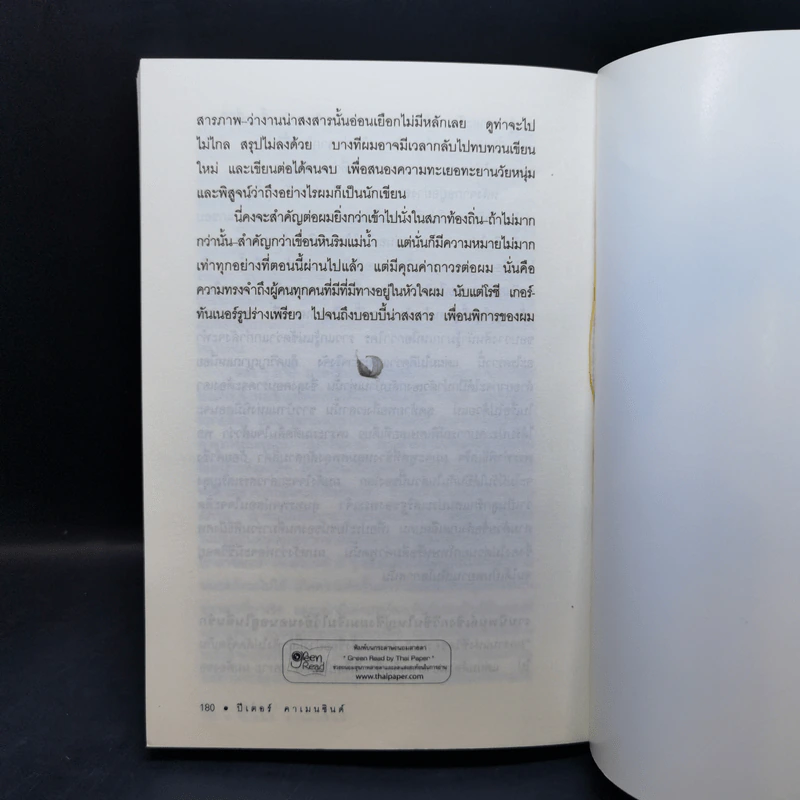 สารภาพ–ว่างานน่าสงสารนั้นอ่อนเยือกไม่มีหลักเลย ดูท่าจะไป
ไม่ไกล สรุปไม่ลงด้วย บางทีผมอาจมีเวลากลับไปทบทวนเขียน
ใหม่ และเขียนต่อได้จนจบ เพื่อสนองความทะเยอทะยานวัยหนุ่ม
และพิสูจน์ว่าถึงอย่างไรผมก็เป็นนักเขียน
นี่คงจะสำคัญต่อผมยิ่งกว่าเข้าไปนั่งในสภาท้องถิ่น–ถ้าไม่มาก
กว่านั้น–สำคัญกว่าเขื่อนหินริมแม่น้ำ แต่นั่นก็มีความหมายไม่มาก
เท่าทุกอย่างที่ตอนนี้ผ่านไปแล้ว แต่มีคุณค่าถาวรต่อผม นั่นคือ
ความทรงจำถึงผู้คนทุกคนที่มีที่ทางอยู่ในหัวใจผม นับแต่โรซี เกอร์-
ทันเนอร์รูปร่างเพรียว ไปจนถึงบอบบี้น่าสงสาร เพื่อนพิการของผม
green Read
พิมพ์บนกระดาษถนอมสายตา
" Green Read by Thai Paper "
www.thaipaper.com
180 • ปีเตอร์ คาเมนซินด์